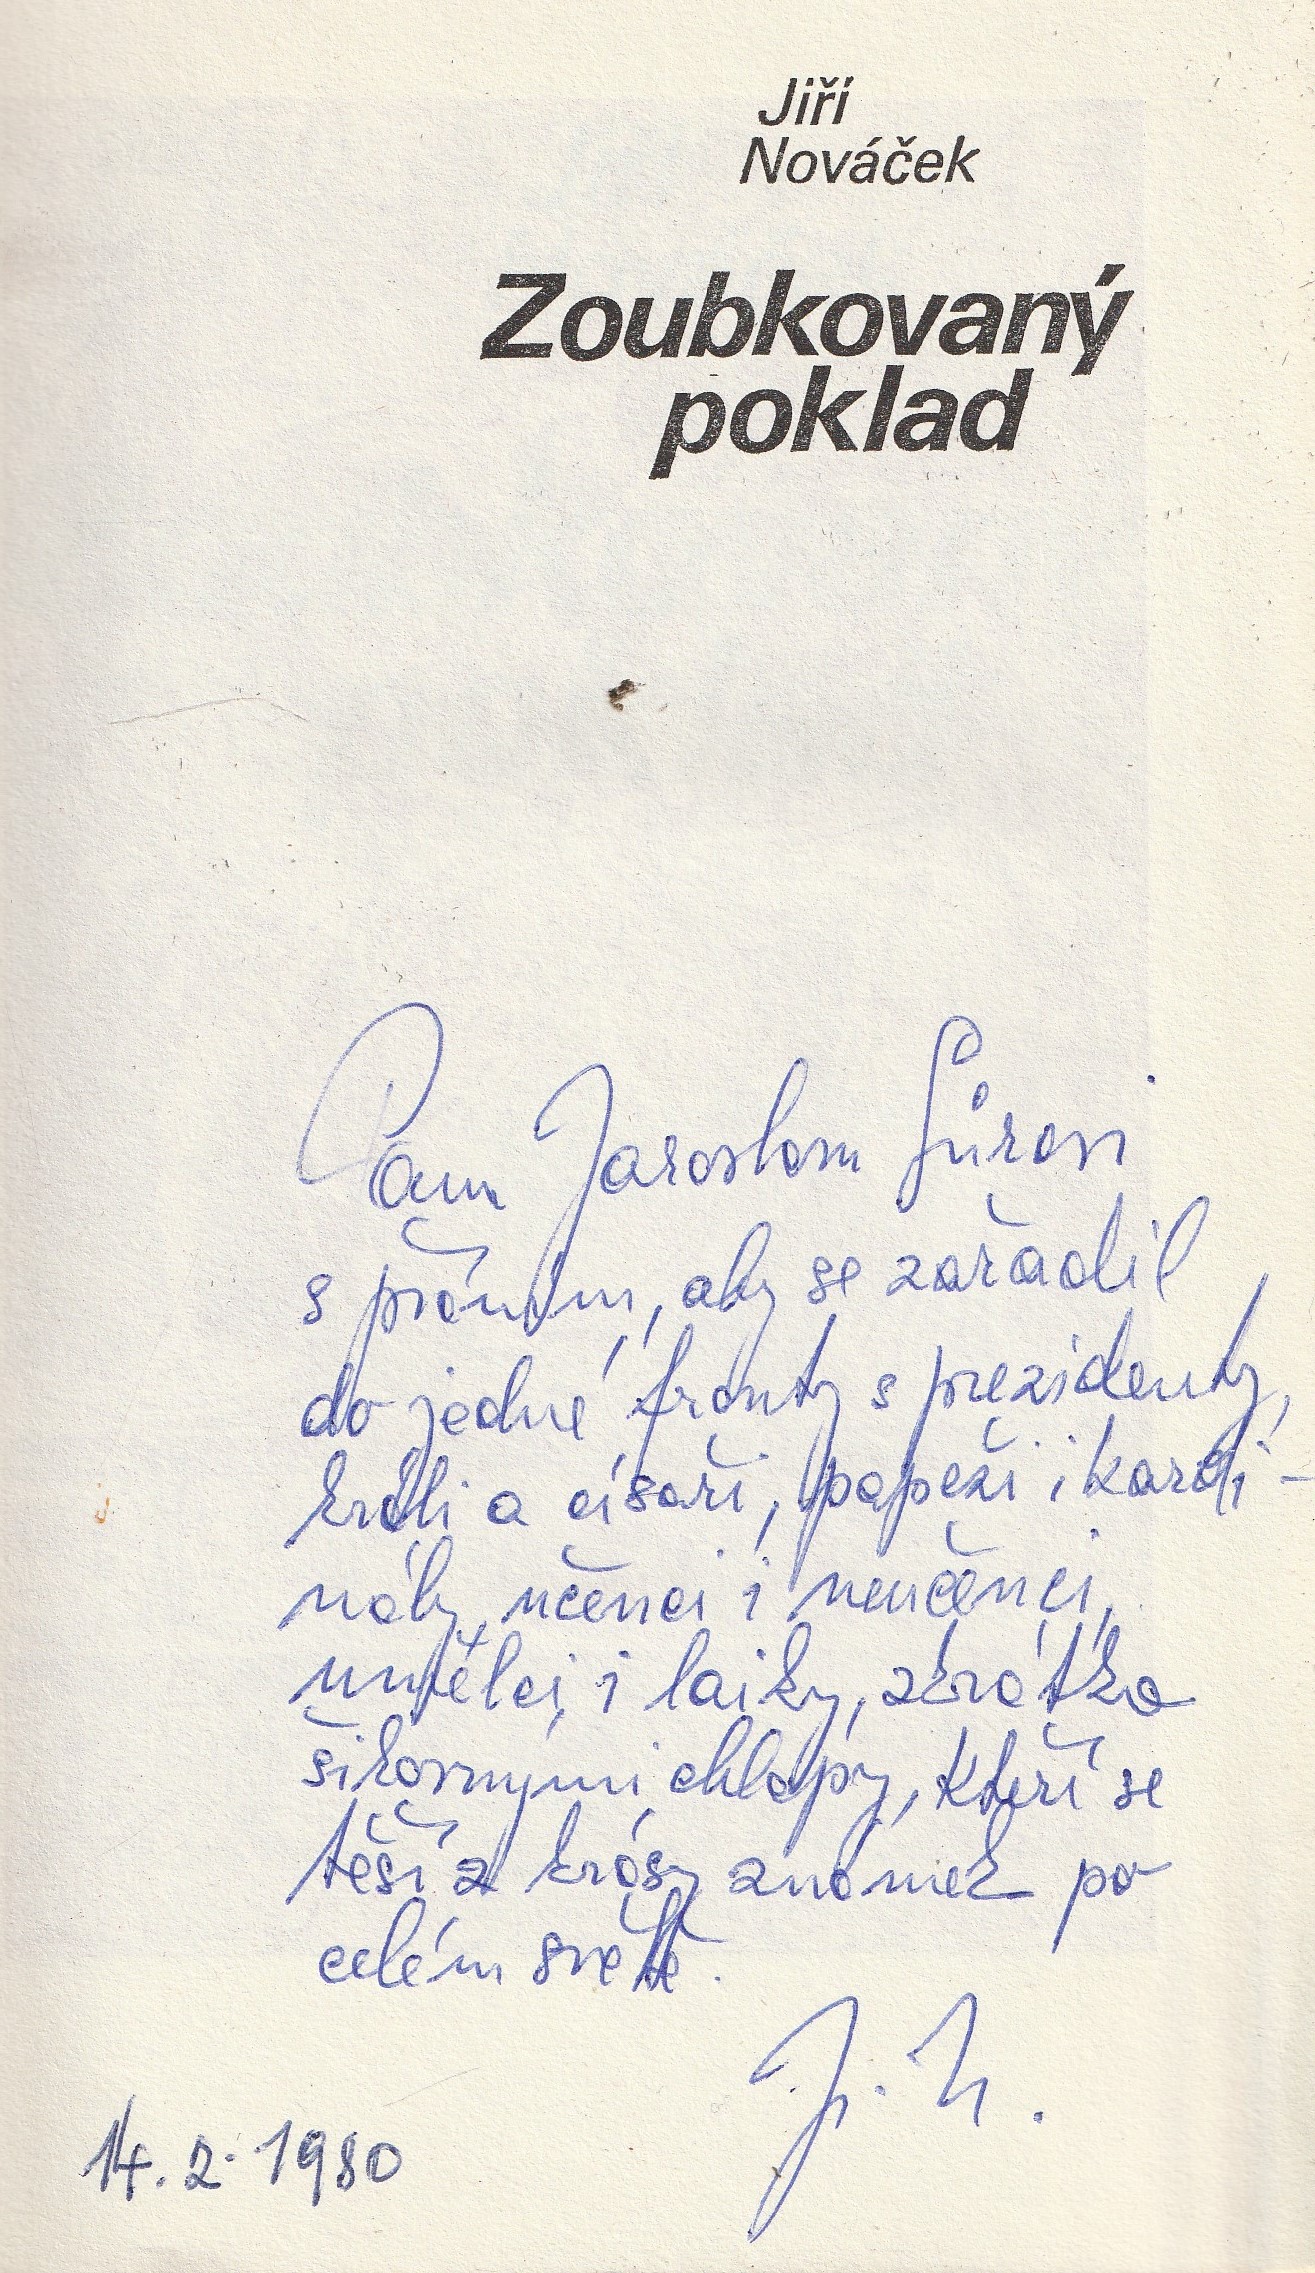 Jiří
Nováček
Zoubkovaný
poklad
Panu Jaroslavu Fůrovi
s přáním, aby se zařadil
do jedné fronty s prezidenty,
králi a císaři, papeži i kardi-
nály, učenci i neučenci,
umělci i laiky, zkrátka
šikovnými chlapy, kteří se
těší z krásy známek po
celém světě.
J. N.
14. 2. 1980